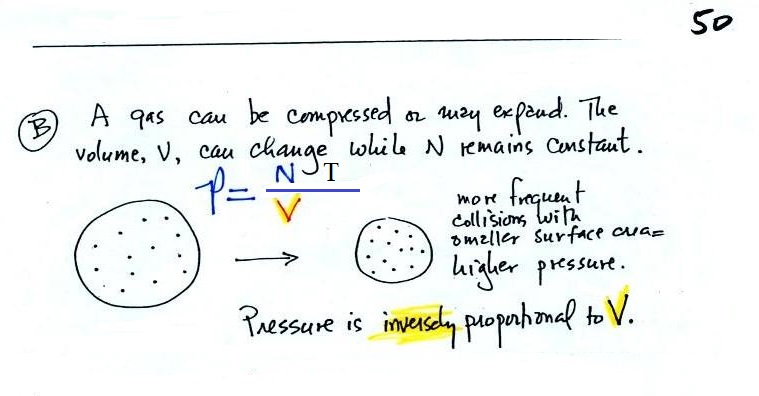 50
B A gas can be compressed or may expand. The
volume, V, can change while N remains constant.
P = N T
V
more frequent
collisions with
smaller surface area =
higher pressure.
Pressure is inversely proportional to V.